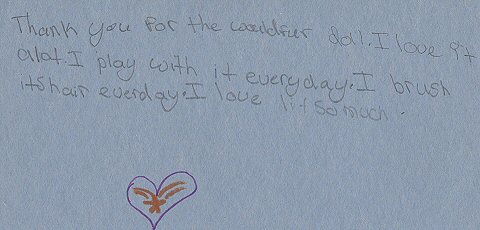 Thank you for the wouldfur doll. I love it
alot. I play with it everyday. I brush
itshair everday. I love it so much.